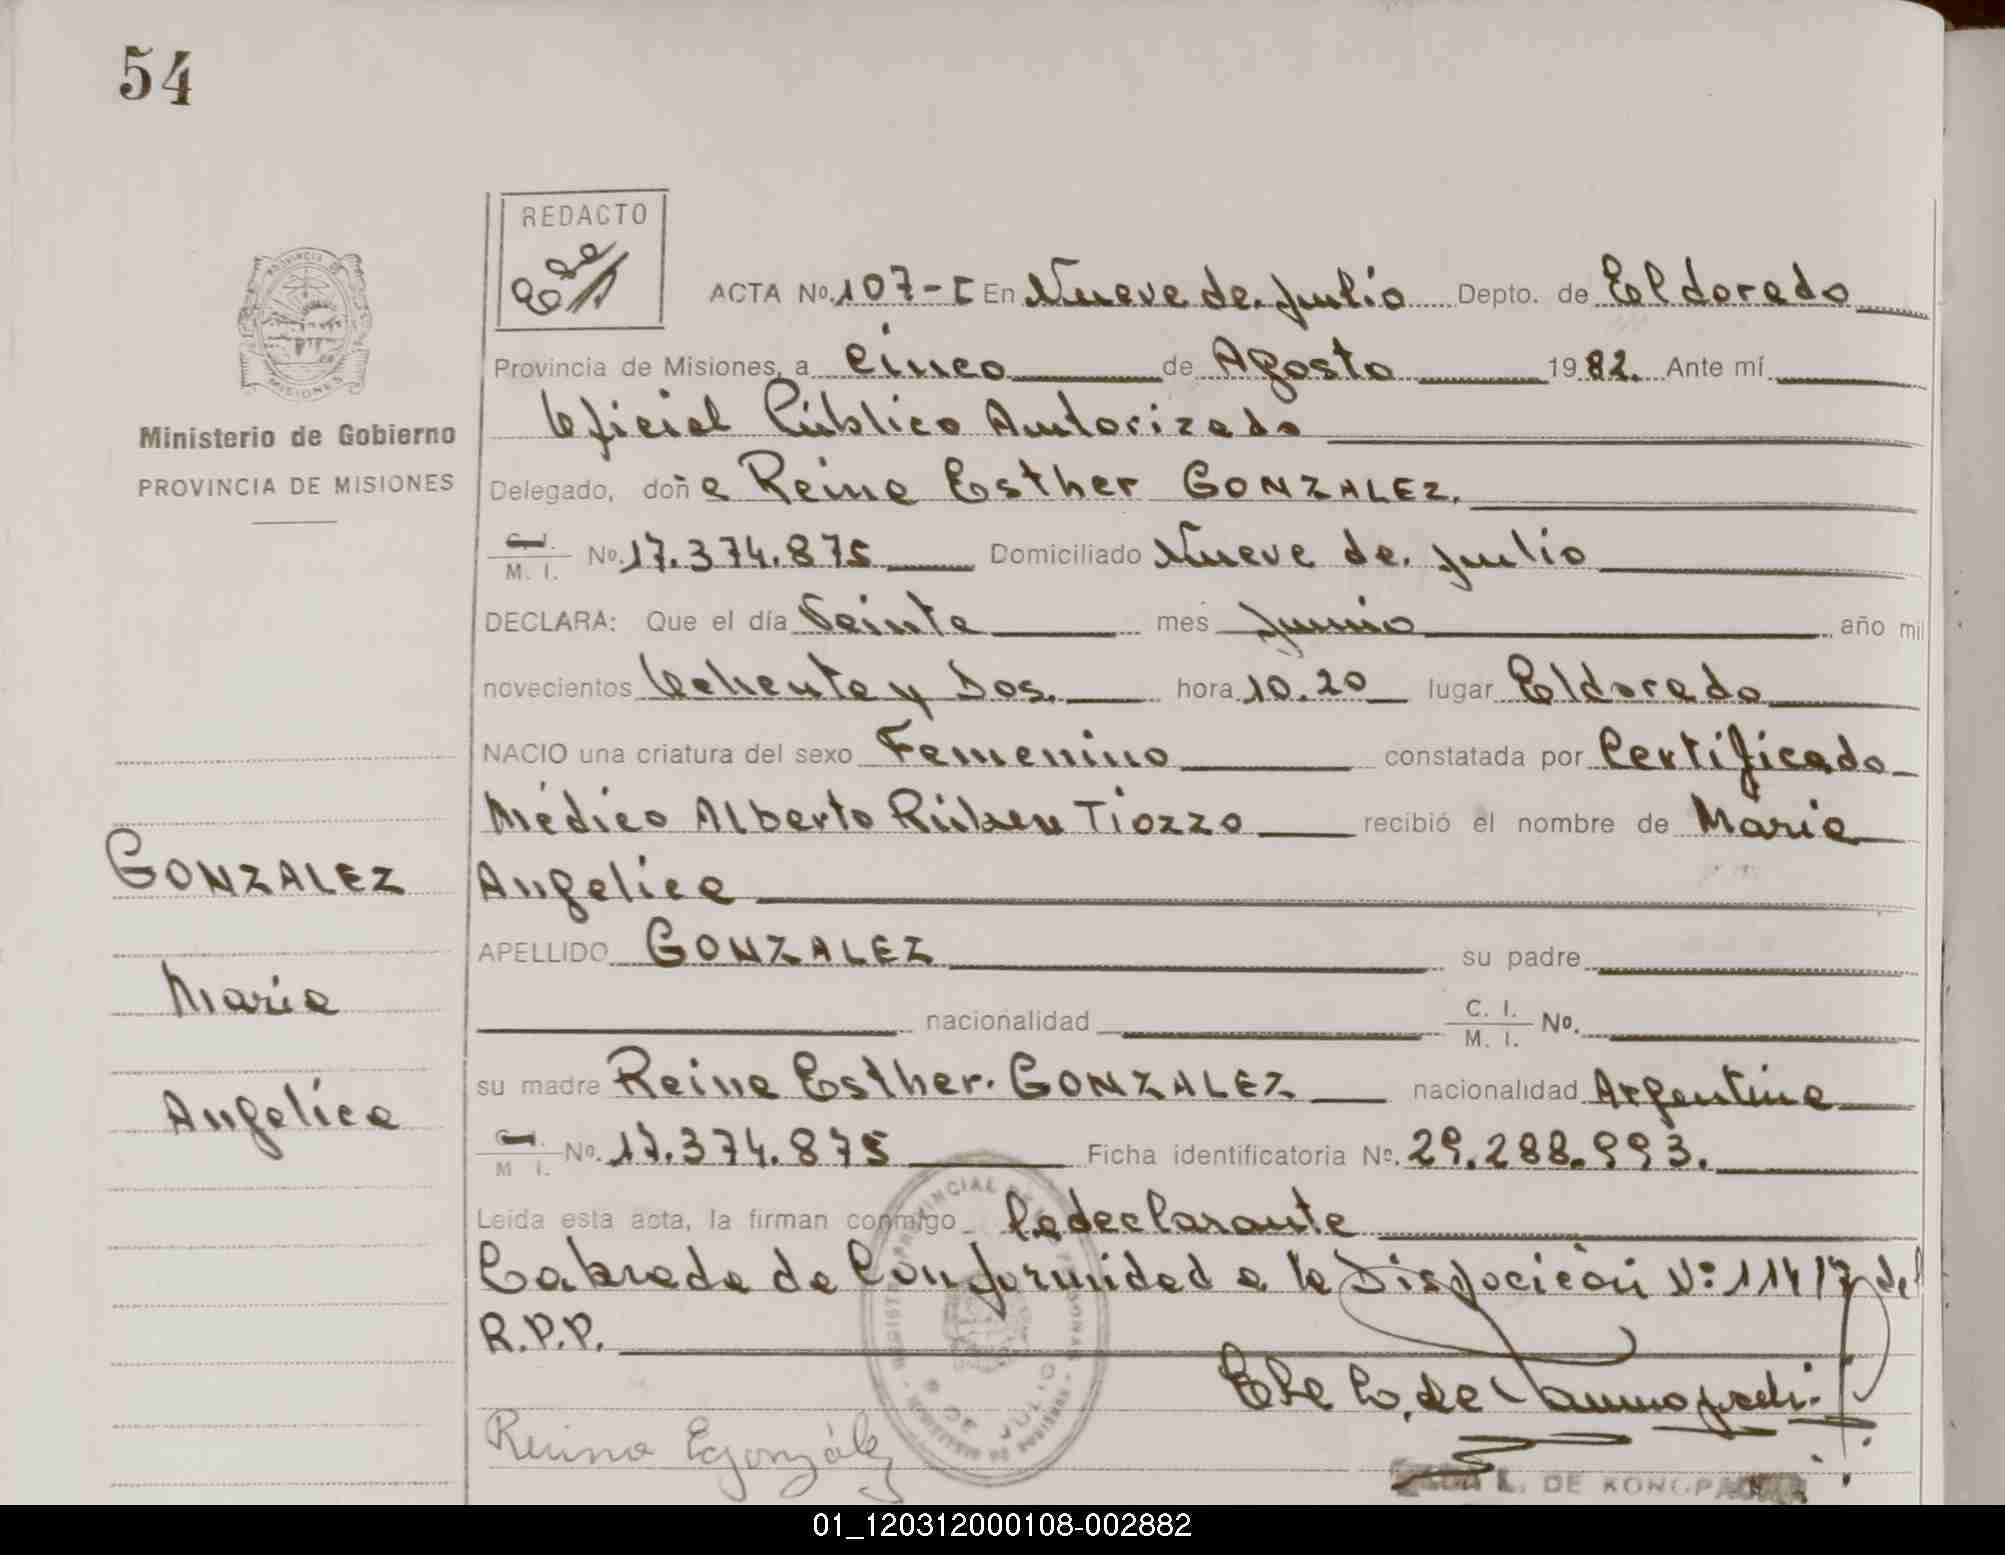 54
REDACTO
ACTA No. 107-I En Nueve de Julio Depto. de Eldorado
Provincia de Misiones, a cinco de Agosto 1982. Ante mí
Oficial Público Autorizado
Ministerio de Gobierno
PROVINCIA DE MISIONES
Delegado, doña Reina Esther GONZALEZ.
C. I. / M. I. No. 17.374.875 Domiciliado Nueve de Julio
DECLARA: Que el día Veinte mes Junio año mil
novecientos Ochenta y Dos. hora 10.20 lugar Eldorado
NACIO una criatura del sexo Femenino constatada por Certificado
Médico Alberto Rúben Tiozzo recibió el nombre de María
Angelica
GONZALEZ
María
Angelica
APELLIDO GONZALEZ su padre
nacionalidad C. I. / M. I. No.
su madre Reina Esther. GONZALEZ nacionalidad Argentina
C. I. / M. I. No. 17.374.875 Ficha identificatoria No. 29.288.993.
Leída esta acta, la firman conmigo la declarante
Labrada de Conformidad a la Disposición Nº 114/7 del
R.P.P.
Reina E González
L. DE KONOPA
01_120312000108-002882